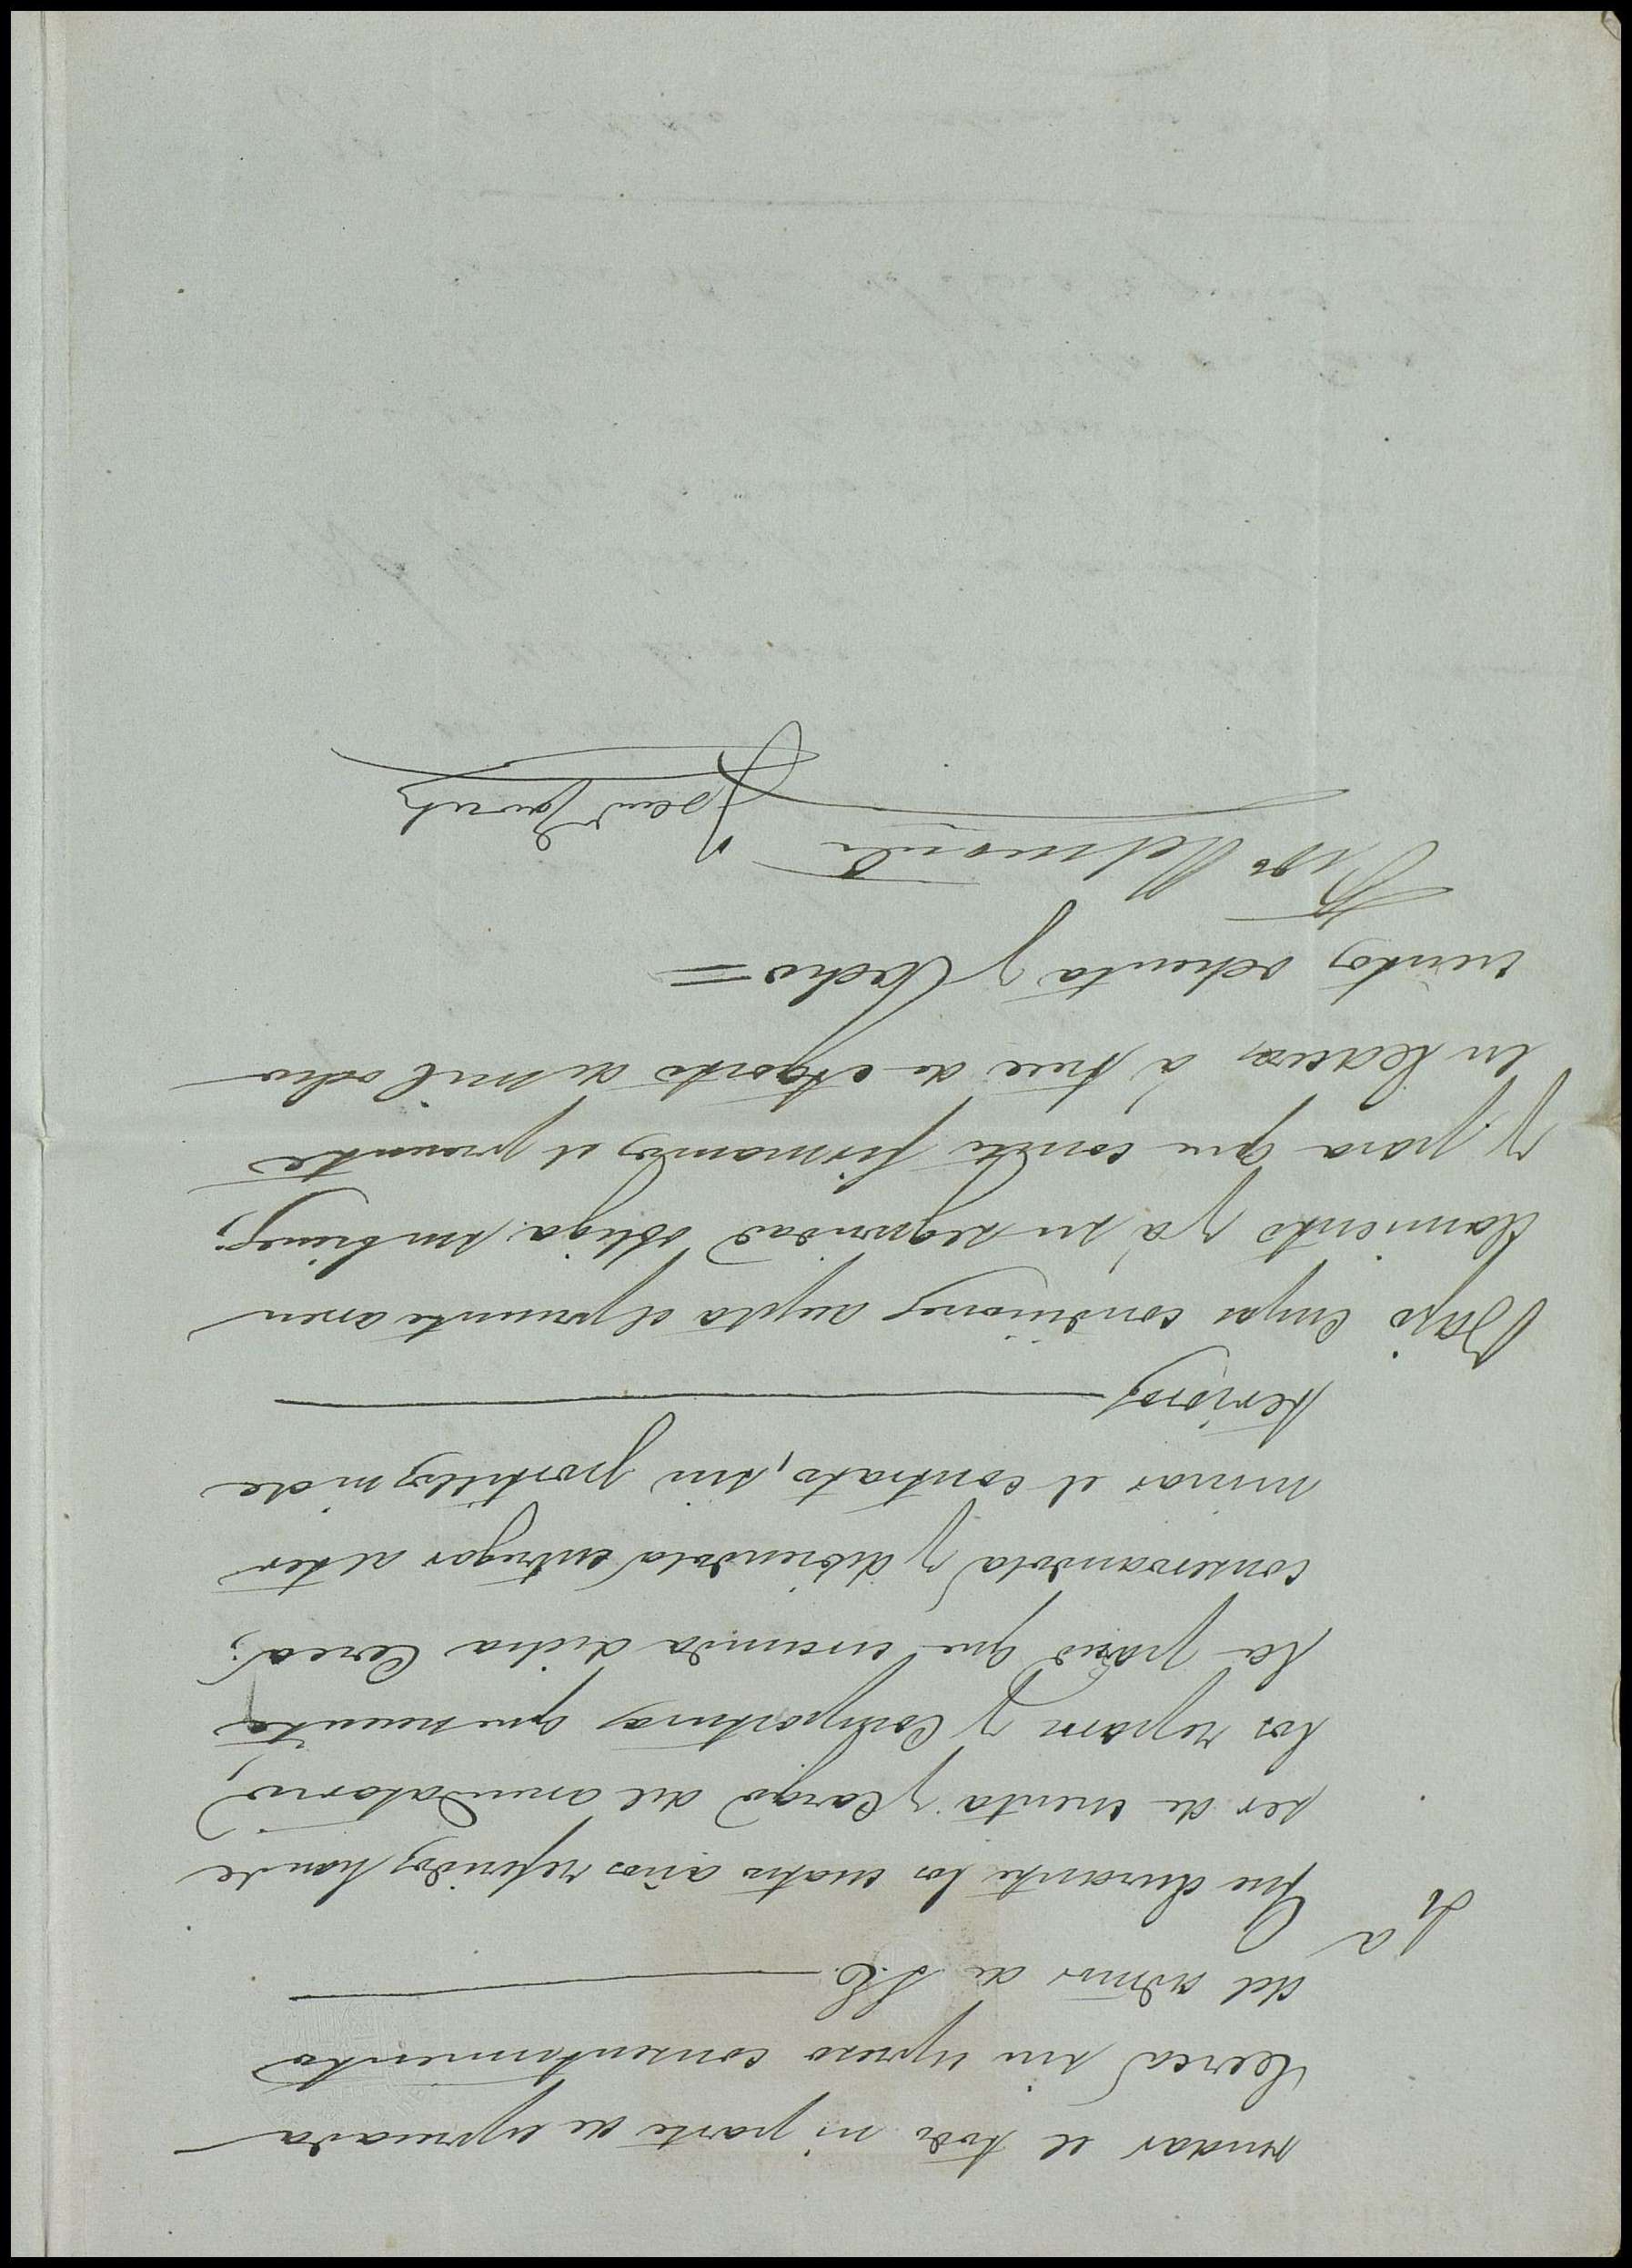 rrendar el todo ni parte de expresada
Cerca sin expreso consentimiento
del admor de S.E.
4ª Que durante los cuatro años referidos han de
ser de cuenta y cargo del arrendatario,
los reparos y composturas que necesite
la pared que circunda dicha Cerca;
conservandola y debiendola entregar al ter
minar el contrato, sin portillos ni de
terioros
Bajo cuyas condiciones acepta el presente arren
damiento y á su seguridad obliga sus bienes;
Y para que conste firmamos el presente
en á trece de Agosto de mil ocho
cientos ochenta y ocho =